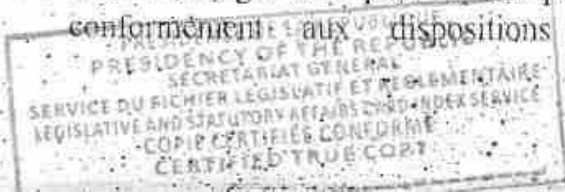 conformément aux dispositions
PRESIDENCE DE LA REPUBLIQUE
PRESIDENCY OF THE REPUBLIC
SECRETARIAT GENERAL
SERVICE DU FICHIER LEGISLATIF ET REGLEMENTAIRE
LEGISLATIVE AND STATUTORY AFFAIRS CARD INDEX SERVICE
COPIE CERTIFIEE CONFORME
CERTIFIED TRUE COPY